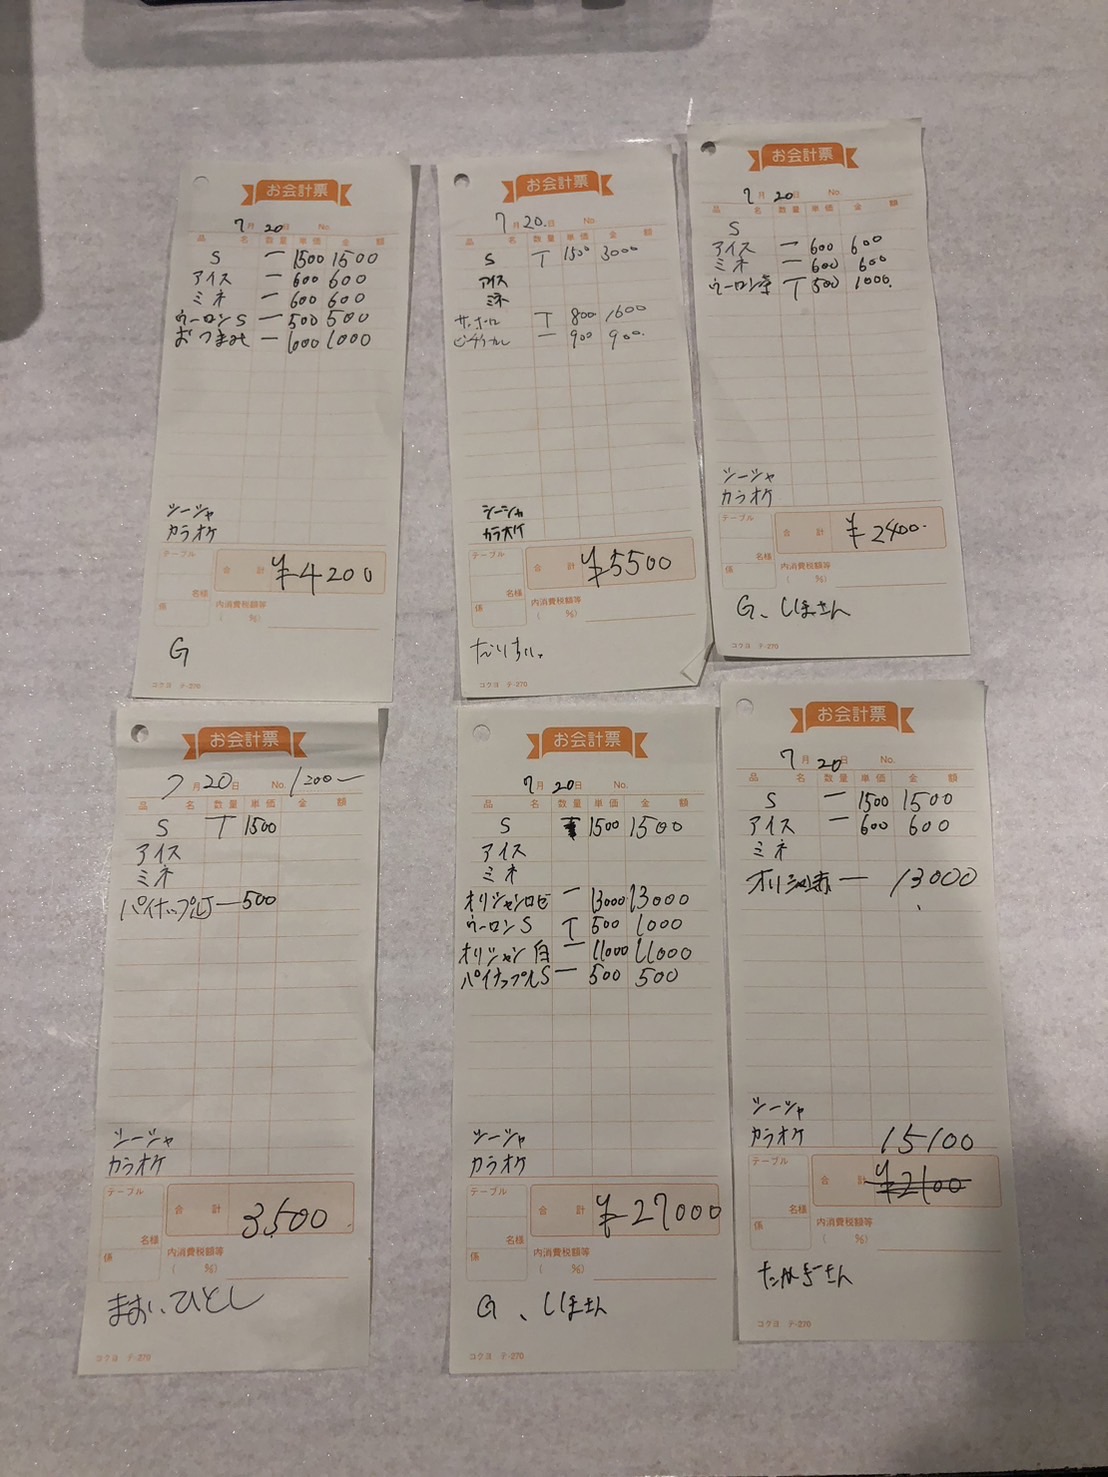 お会計票
7月20日 No.
品 名 数量 単価 金 額
S 一 1500 1500
アイス 一 600 600
ミネ 一 600 600
ウーロンS 一 500 500
おつまみ 一 1000 1000
シーシャ
カラオケ
テーブル
合 計 ¥4200
名様
係 内消費税額等
( %)
G
コクヨ テ-270
お会計票
7月20日 No.
品 名 数量 単価 金 額
S T 1500 3000
アイス
ミネ
T 800 1600
一 900 900.
シーシャ
カラオケ
テーブル
合 計 ¥5500
名様
係 内消費税額等
( %)
コクヨ テ-270
お会計票
7月20日 No.
品 名 数量 単価 金 額
S
アイス 一 600 600
ミネ 一 600 600
ウーロン茶 T 500 1000.
シーシャ
カラオケ
テーブル
合 計 ¥2400.
名様
係 内消費税額等
( %)
G、しほさん
コクヨ テ-270
お会計票
7月20日 No. 1200ー
品 名 数量 単価 金 額
S T 1500
アイス
ミネ
パイナップルJ 一 500
シーシャ
カラオケ
テーブル
合 計 3,500
名様
係 内消費税額等
( %)
まおい、ひとし
コクヨ テ-270
お会計票
7月20日 No.
品 名 数量 単価 金 額
S 1500 1500
アイス
ミネ
オリシャンロゼ 一 13000 13000
ウーロンS T 500 1000
オリシャン白 一 11000 11000
パイナップルS 一 500 500
シーシャ
カラオケ
テーブル
合 計 ¥27000
名様
係 内消費税額等
( %)
G、しほさん
コクヨ テ-270
お会計票
7月20日 No.
品 名 数量 単価 金 額
S 一 1500 1500
アイス 一 600 600
ミネ
オリシャン赤 一 13000
シーシャ
カラオケ 15100
テーブル
合 計 ¥2100
名様
係 内消費税額等
( %)
コクヨ テ-270